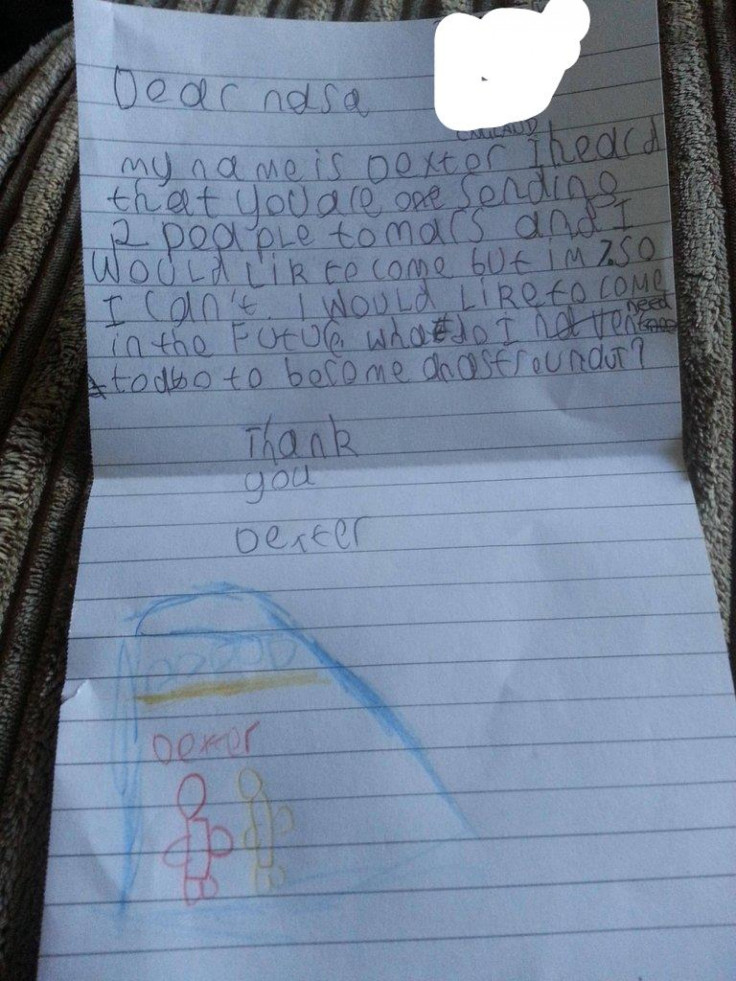 Dear nasa
ENGLAUD
my name is Dexter I heard
that you are sending
2 peaple to mars and I
WOULd Lik to come but im 7. so
I can't. I WOULd Like to come
in the FUtUre. what do I need
to do to become an astroundut?
Thank
you
Dexter
Dexter